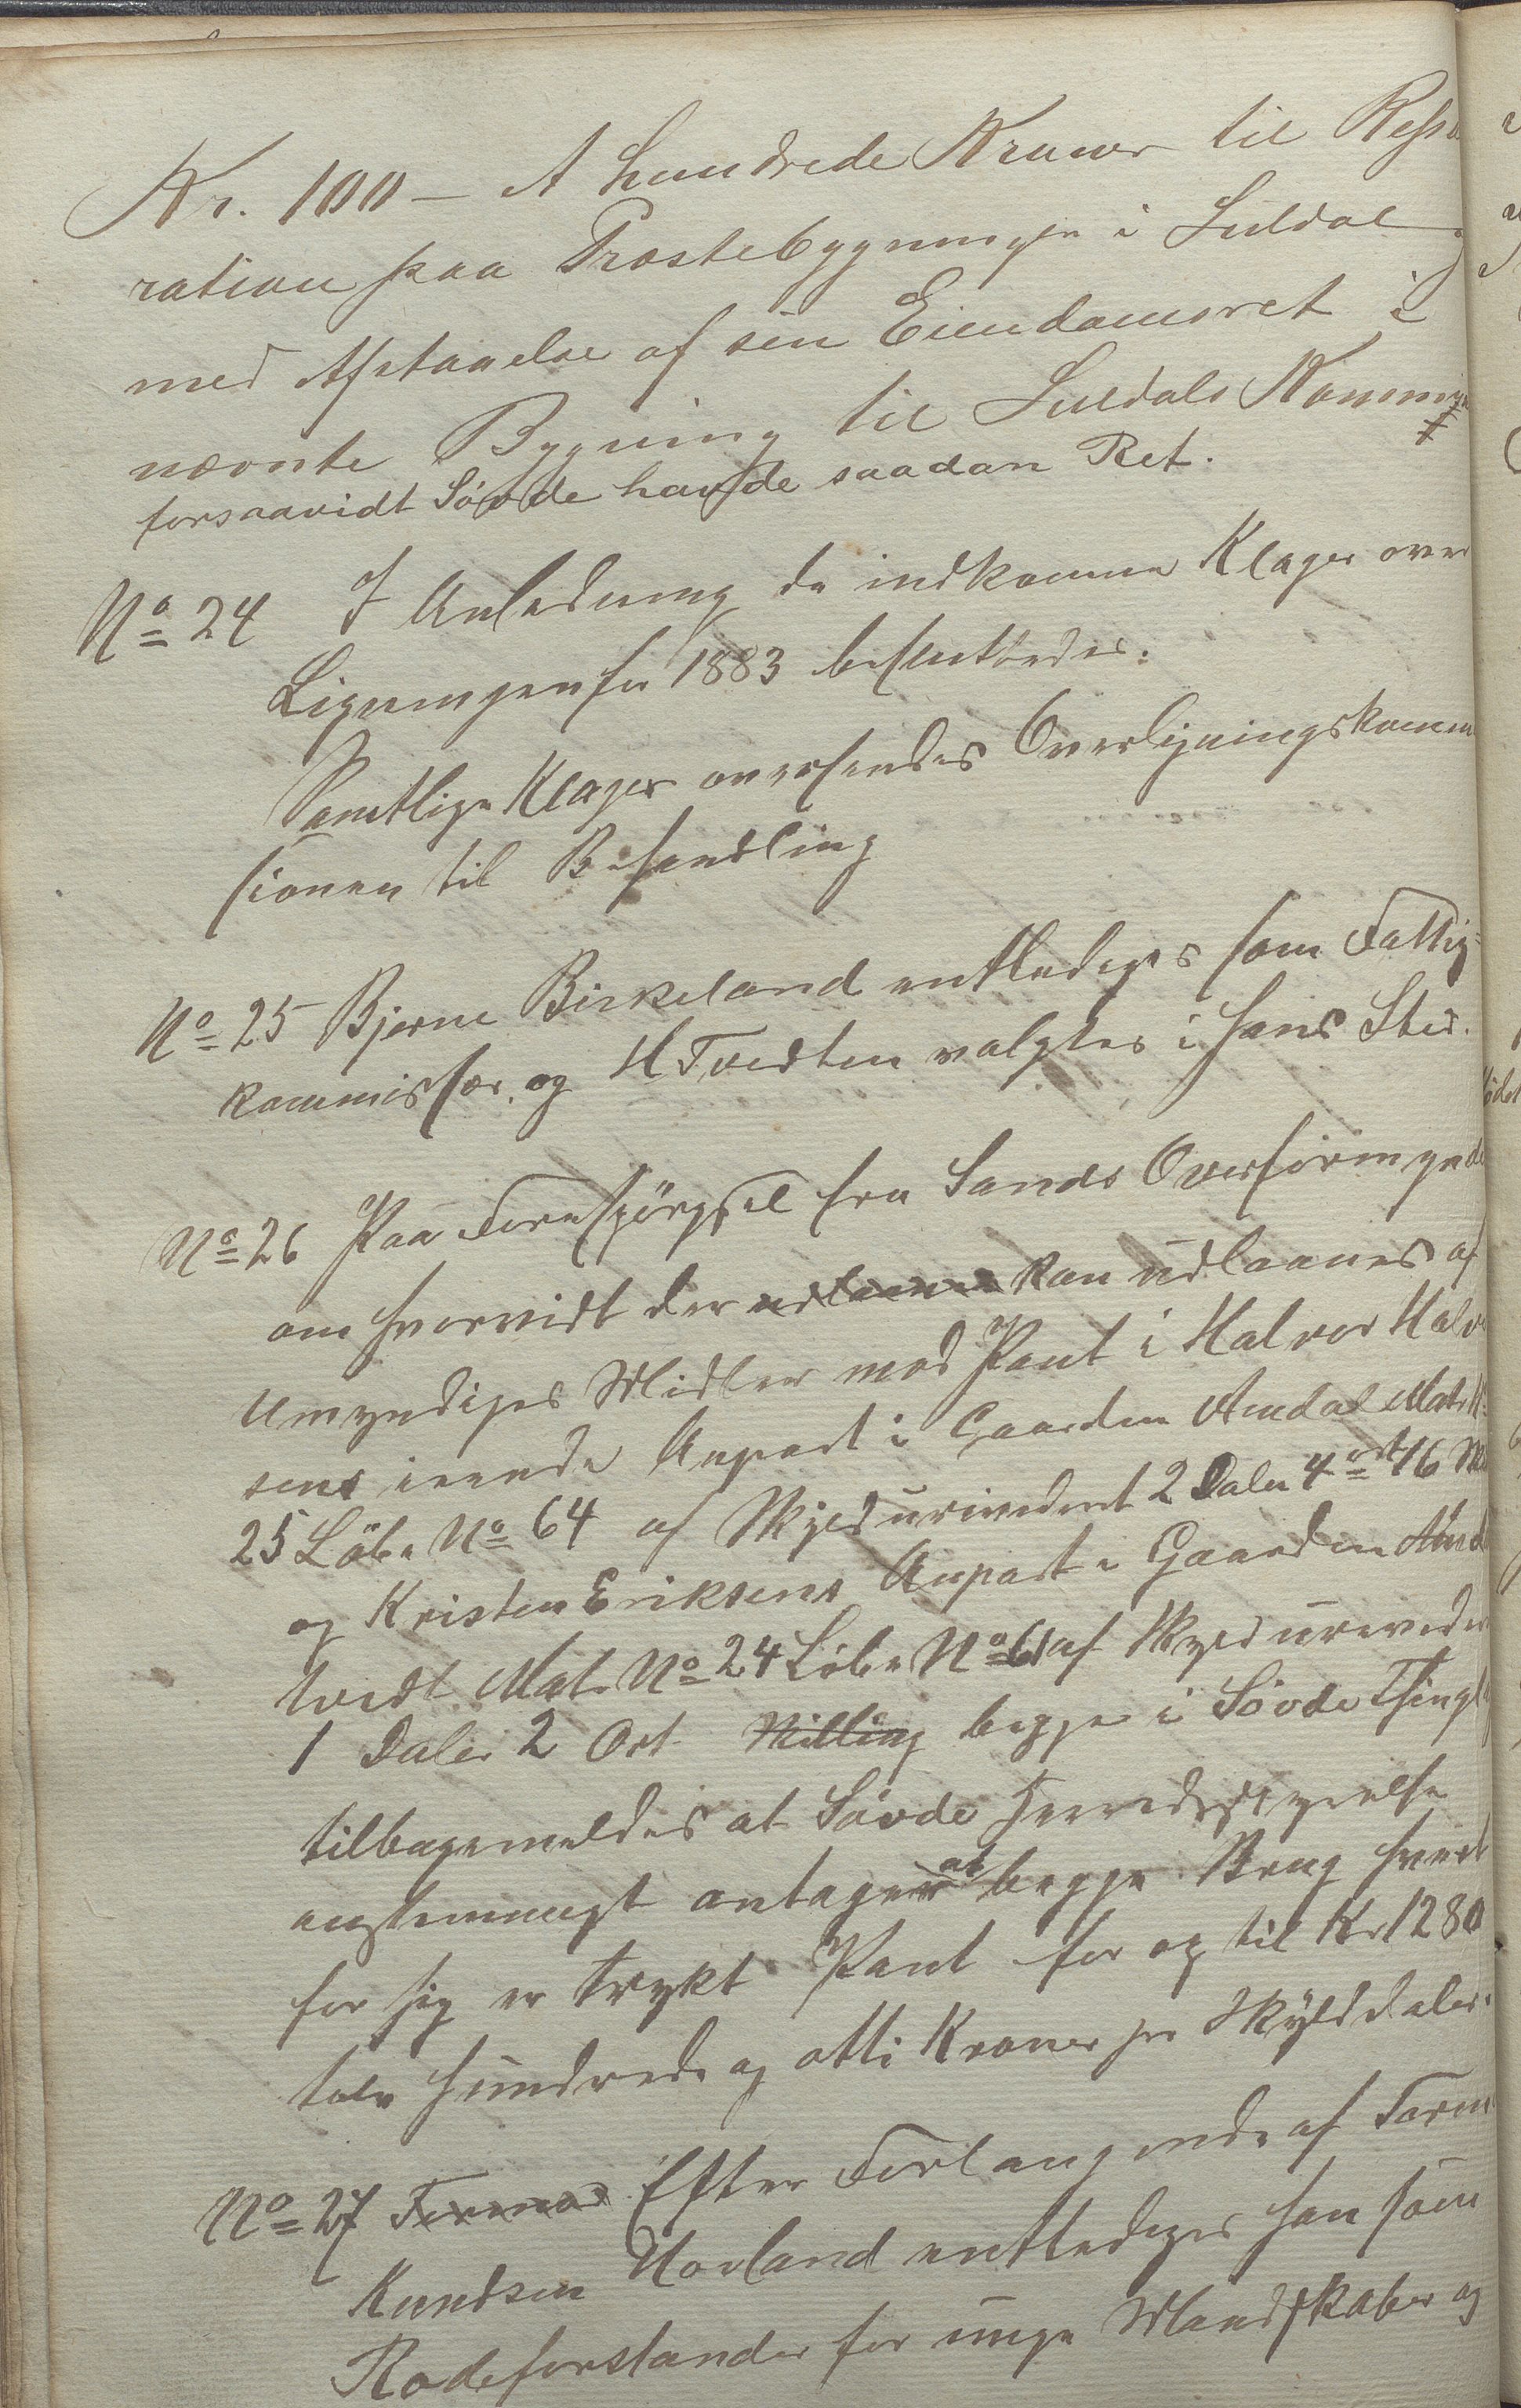 Kr. 100 – Et hundrede Kroner til Repa
ration paa Præstebygningen i Suldal
med Afstaaelse af sin Eiendomsret i
nævnte Bygning til Suldals Kommun
forsaavidt Søvde havde saadan Ret.
No 24 I Anledning de indkomne Klager over
Ligningen for 1883 besluttedes:
Samtlige Klager oversendes Overligningskommi
sionen til Behandling
No 25 Bjerne Birkeland entlediges som Fattig-
kommissær, og H Tvedten valgtes i hans Sted.
No 26 Paa Forespörgsel fra Sands Overformynde
om hvorvidt der udlaanes kan udlaanes af
Umyndiges Midler mod Pant i Halvor Halvor
sens eiende Anpart i Gaarden Amdal Mat. No
25 Löbe No 64 af Skyld urevideret 2 Daler 4 ort 16 sk
og Kristen Eriksens Anpart i Gaarden Amdal
tvedt Mat. No 24 Löbe No 61 af Skyld urevideret
1 Daler 2 Ort Skilling begge i Søvde Thinglag
tilbagemeldes at Søvde Herredsstyrelse
enstemmigt antager at begge Brug hvert
for sig er trykt Pant for op til Kr 1280
tolv hundrede og otti Kroner pr Skylddaler.
No 27 Efter Forlangende af Torm
Knudsen Hovland entlediges han som
Rodeforstander for unge Mandskaber og